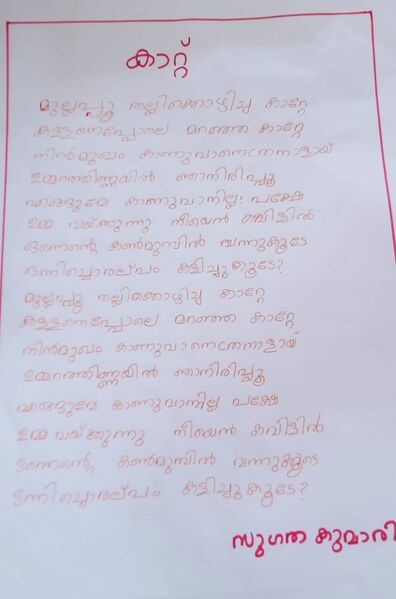 കാറ്റ്
മുല്ലപ്പൂ തല്ലിക്കൊഴിച്ച കാറ്റേ
കള്ളനെപ്പോലെ മറഞ്ഞ കാറ്റേ
നിൻമുഖം കാണുവാനെത്രനാളായ്
ഉമ്മറത്തിണ്ണയിൽ ഞാനിരിപ്പൂ
എങ്ങുമേ കാണുവാനില്ല! പക്ഷേ
ഉമ്മ വയ്ക്കുന്നു നീയെൻ കവിളിൽ
ഒന്നെന്റെ കൺമുമ്പിൽ വന്നുകൂടെ
ഒന്നിച്ചൊരല്പം കളിച്ചുകൂടേ?
മുല്ലപ്പൂ തല്ലിക്കൊഴിച്ച കാറ്റേ
കള്ളനെപ്പോലെ മറഞ്ഞ കാറ്റേ
നിൻമുഖം കാണുവാനെത്രനാളായ്
ഉമ്മറത്തിണ്ണയിൽ ഞാനിരിപ്പൂ
എങ്ങുമേ കാണുവാനില്ല പക്ഷേ
ഉമ്മ വയ്ക്കുന്നു നീയെൻ കവിളിൽ
ഒന്നെന്റെ കൺമുമ്പിൽ വന്നുകൂടെ
ഒന്നിച്ചൊരല്പം കളിച്ചുകൂടേ?
സുഗത കുമാരി